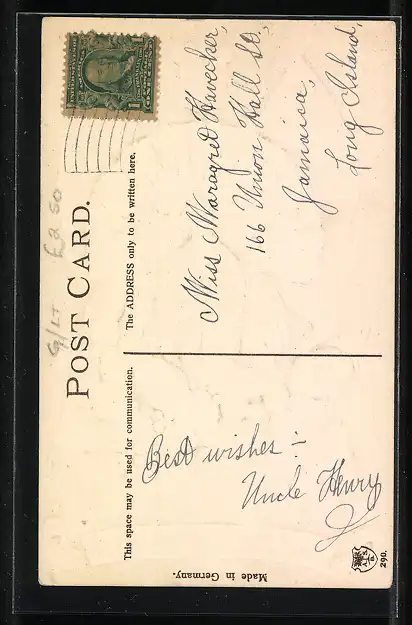 G/LT £2.50
POST CARD.
This space may be used for communication.
The ADDRESS only to be written here.
Best wishes –
Uncle Henry
Miss Maragred Havecher,
166 Union Hall St.,
Jamaica,
Long Island,
Made in Germany.
290.